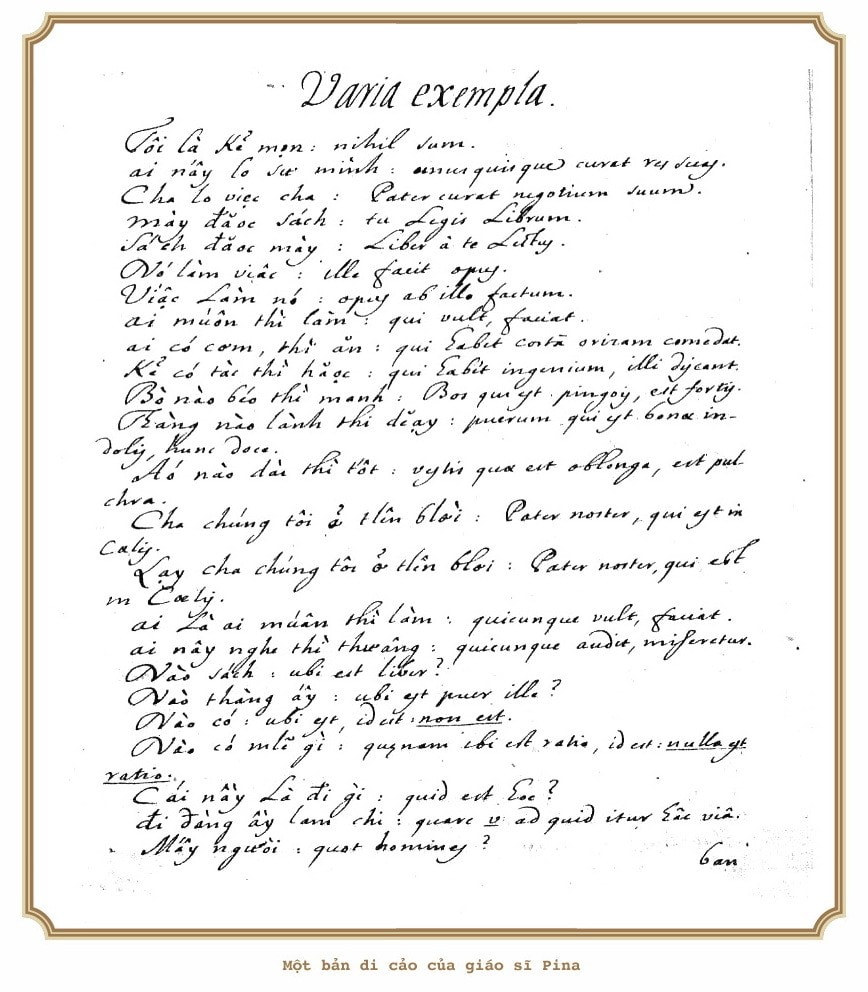 Varia exempla.
Tôi là kẻ mọn : nihil sum.
ai nấy lo sự mình : unusquisque curat res suas.
Cha lo việc cha : Pater curat negotium suum.
mày đăọc sách : tu Legis Librum.
Sách đăọc mày : Liber à te Lectus.
Nó làm viậc : ille facit opus.
Viậc Làm nó : opus ab illo factum.
ai múôn thì làm : qui vult, faciat.
ai có cơm, thì ăn : qui habet coctã orizam comedat.
Kẻ có tài thì hăọc : qui habet ingenium, illi discant.
Bò nào béo thì mạnh : Bos qui est pinguis, est fortis.
Thàng nào lành thì dĕạy : puerum qui est bonæ in-
dolis, hunc doce.
Áó nào dài thì tốt : vestis quæ est oblonga, est pul-
chra.
Cha chúng tôi ở tlên blời : Pater noster, qui est in
Cælis.
Lạy cha chúng tôi ở tlên blơi : Pater noster, qui est
in Cælis.
ai Là ai múân thì làm : quicunque vult, faciat.
ai nấy nghe thì thưâng : quicunque audit, miseretur.
Nào sách : ubi est liber?
Nào thàng ấy : ubi est puer ille?
Nào có : ubi est, id est: non est.
Nào có mlẽ gì : quænam ibi est ratio, id est: nulla est
ratio.
Cái nầy Là đi gì : quid est hoc?
đi đàng ấy lam chi : quare v ad quid itur hâc viâ.
Mấy người : quot homines?
ban
Một bản di cảo của giáo sĩ Pina